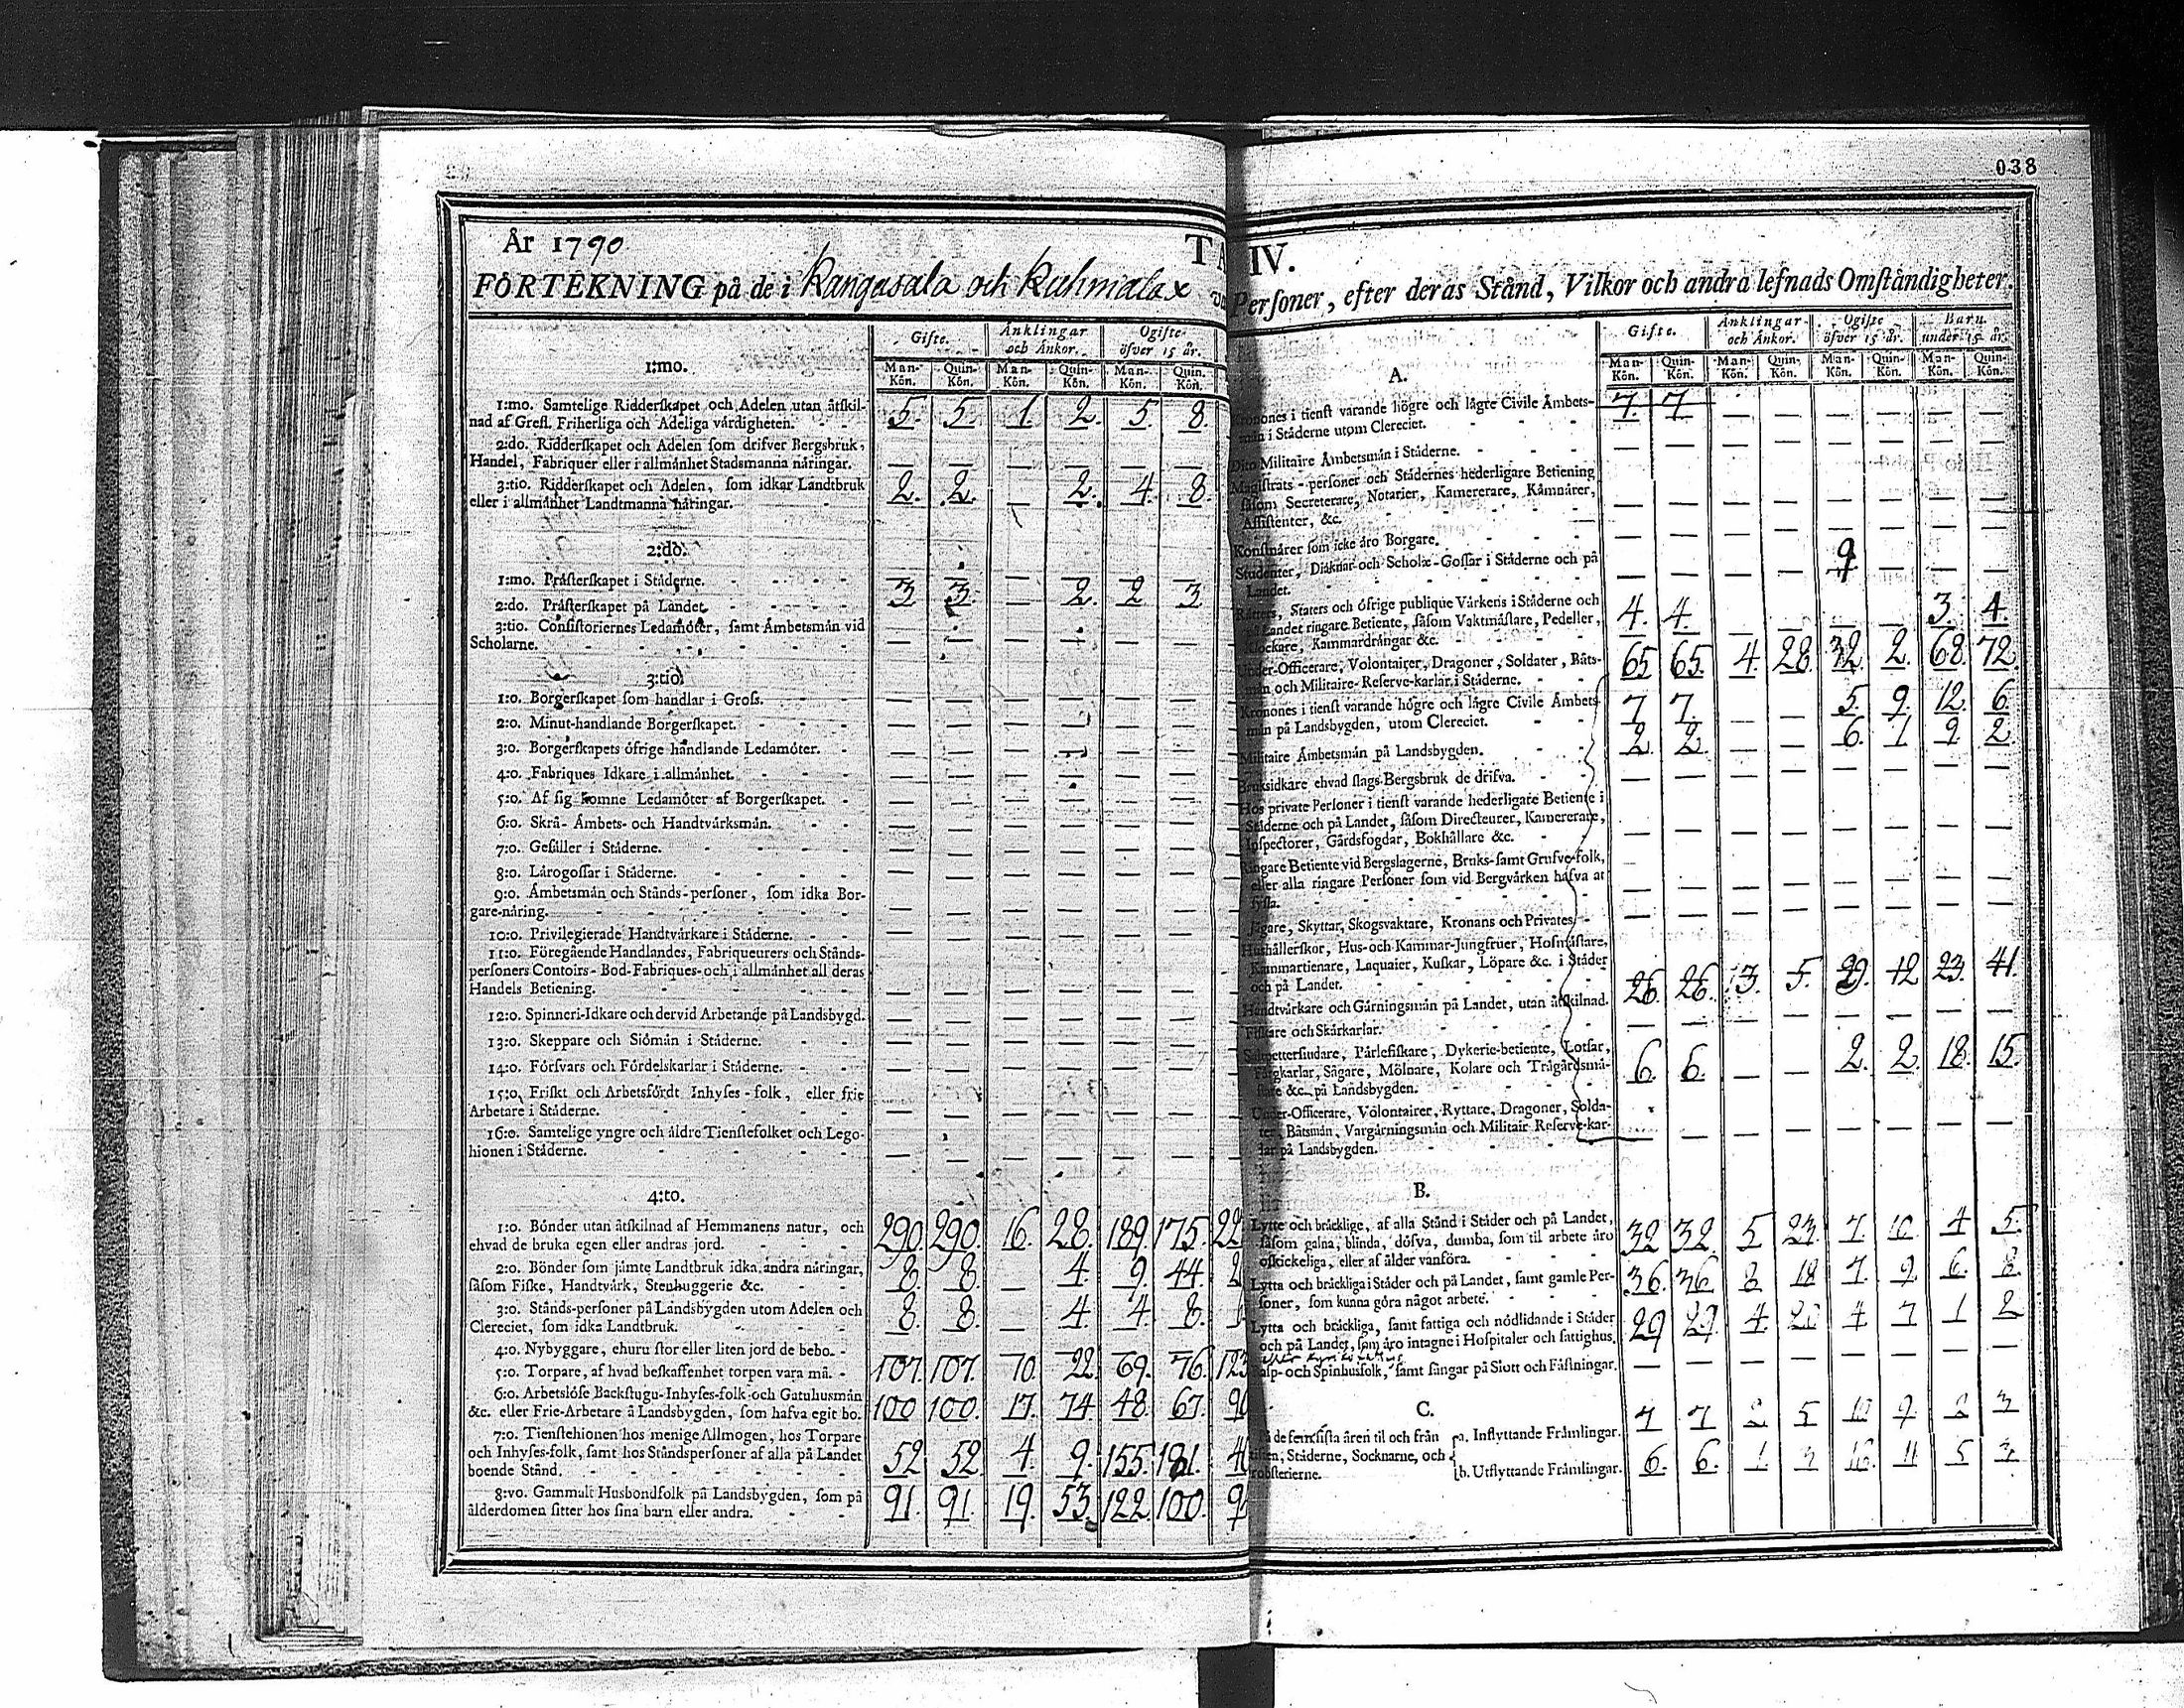 038
År 1790
TA
FÖRTEKNING på de i Kangasala och Kuhmalax
Gifte. Änklingar och Änkor. Ogifte öfver 15 år.
Man-Kön. Quin-Kön. Man-Kön. Quin-Kön. Man-Kön. Quin.Kön.
1:mo.
1:mo. Samtelige Ridderskapet och Adelen utan åtskil-
nad af Grefl. Friherliga och Adeliga vårdigheten. 5. 5. 1. 2. 5. 8.
2:do. Ridderskapet och Adelen som drifver Bergsbruk,
Handel, Fabriquer eller i allmånhet Stadsmanna nåringar. — — — — — —
3:tio. Ridderskapet och Adelen, som idkar Landtbruk
eller i allmånhet Landtmanna nåringar. 2. 2. — 2. 4. 8.
2:do.
1:mo. Pråsterskapet i Ståderne. — — — — — —
2:do. Pråsterskapet på Landet. 3 3 — 2. 2 3
3:tio. Consistoriernes Ledamöter, samt Åmbetsmån vid
Scholarne. — — — — — —
3:tio.
1:o. Borgerskapet som handlar i Gross. — — — — — —
2:o. Minut-handlande Borgerskapet. — — — — — —
3:o. Borgerskapets öfrige handlande Ledamöter. — — — — — —
4:o. Fabriques Idkare i allmånhet. — — — — — —
5:o. Af sig komne Ledamöter af Borgerskapet. — — — — — —
6:o. Skrå- Åmbets- och Handtvårksmån. — — — — — —
7:o. Gesåller i Ståderne. — — — — — —
8:o. Lårogossar i Ståderne. — — — — — —
9:o. Åmbetsmån och Stånds-personer, som idka Bor-
gare-nåring. — — — — — —
10:o. Privilegierade Handtvårkare i Ståderne. — — — — — —
11:o. Föregående Handlandes, Fabriqueurers och Stånds-
personers Contoirs- Bod-Fabriques- och i allmånhet all deras
Handels Betiening. — — — — — —
12:o. Spinneri-Idkare och dervid Arbetande på Landsbygd. — — — — — —
13:o. Skeppare och Siömån i Ståderne. — — — — — —
14:o. Försvars och Fördelskarlar i Ståderne. — — — — — —
15:o. Friskt och Arbetsfördt Inhyses-folk, eller frie
Arbetare i Ståderne. — — — — — —
16:o. Samtelige yngre och åldre Tienstefolket och Lego-
hionen i Ståderne. — — — — — —
4:to.
1:o. Bönder utan åtskilnad af Hemmanens natur, och
ehvad de bruka egen eller andras jord. 290. 290. 16. 28. 189. 175. 22
2:o. Bönder som jåmte Landtbruk idka andra nåringar,
såsom Fiske, Handtvårk, Stenhuggerie &c. 8. 8. — 4. 9. 44. 2
3:o. Stånds-personer på Landsbygden utom Adelen och
Clereciet, som idka Landtbruk. 8. 8. — 4. 4. 8.
4:o. Nybyggare, ehuru stor eller liten jord de bebo. — — — — — —
5:o. Torpare, af hvad beskaffenhet torpen vara må. 107. 107. 10. 22. 69. 76. 123
6:o. Arbetslöse Backstugu-Inhyses-folk och Gatuhusmån
&c. eller Frie-Arbetare å Landsbygden, som hafva eget bo. 100 100. 17. 74. 48. 67. 90
7:o. Tienstehionen hos menige Allmogen, hos Torpare
och Inhyses-folk, samt hos Ståndspersoner af alla på Landet
boende Stånd. 52 52. 4. 9. 155. 181. 4
8:vo. Gammalt Husbondfolk på Landsbygden, som på
ålderdomen sitter hos sina barn eller andra. 91. 91. 19. 53. 122. 100. 9
IV.
Personer, efter deras Stånd, Vilkor och andra lefnads Omståndigheter.
Gifte. Änklingar och Änkor. Ogifte öfver 15 år. Barn under 15 år.
Man-Kön. Quin-Kön. Man-Kön. Quin-Kön. Man-Kön. Quin-Kön. Man-Kön. Quin-Kön.
A.
Kronones i tienst varande högre och lågre Civile Åmbets-
mån i Ståderne utom Clereciet. 7. 7 — — — — — —
Dito Militaire Åmbetsmån i Ståderne. — — — — — — — —
Magistrats-personer och Stådernes hederligare Betiening
såsom Secreterare, Notarier, Kamererare, Kåmnårer,
Assistenter, &c. — — — — — — — —
Konstnårer som icke åro Borgare. — — — — — — — —
Studenter, Diåknar och Scholæ-Gossar i Ståderne och på
Landet. — — — — 9 — — —
Råttens, Staters och öfrige publique Vårkens i Ståderne och
Landet ringare Betiente, såsom Vaktmåstare, Pedeller,
Klockare, Kammardrångar &c. 4. 4. — — — — 3. 4.
Under-Officerare, Volontairer, Dragoner, Soldater, Båts-
mån och Militaire-Reserve-karlar i Ståderne. 65 65. 4. 28. 32. 2. 68. 72.
Kronones i tienst varande högre och lågre Civile Åmbets-
mån på Landsbygden, utom Clereciet. 7 7. — — 5. 9. 12. 6.
Militaire Åmbetsmån på Landsbygden. 2. 2. — — 6. 1 9. 2.
Bruksidkare ehvad slags Bergsbruk de drifva. — — — — — — — —
Hos private Personer i tienst varande hederligare Betiente i
Ståderne och på Landet, såsom Directeurer, Kamererare,
Inspectorer, Gårdsfogdar, Bokhållare &c. — — — — — — — —
Ringare Betiente vid Bergslagerne, Bruks-samt Grufve-folk,
eller alla ringare Personer som vid Bergvårken hafva at
sysla. — — — — — — — —
Jågare, Skyttar, Skogsvaktare, Kronans och Privates. — — — — — — — —
Hushållerskor, Hus-och Kammar-Jungfruer, Hofmåstare,
Kammartienare, Laquaier, Kuskar, Löpare &c. i Ståder
och på Landet.
Handtvårkare och Gårningsmån på Landet, utan åtskilnad. 26. 26. 3. 5. 29. 12 23. 41.
Fiskare och Skårkarlar. — — — — — — — —
Salpettersiudare, Pårlefiskare, Dykerie-betiente, Lotsar,
Fårgkarlar, Sågare, Mölnare, Kolare och Trågårdsmå-
stare &c. på Landsbygden. 6. 6. — — 2. 2 18. 15.
Under-Officerare, Volontairer, Ryttare, Dragoner, Solda-
ter, Båtsmån, Vargårningsmån och Militair Reserve-kar-
lar på Landsbygden. — — — — — — —
B.
Lytte och bråcklige, af alla Stånd i Ståder och på Landet,
såsom galna, blinda, döfva, dumba, som til arbete åro
oskickeliga, eller af ålder vanföra. 32 32. 5 23. 7. 10. 4 5.
Lytta och bråckliga i Ståder och på Landet, samt gamle Per-
soner, som kunna göra något arbete. 36. 36. 8 18 7. 9. 6. 8.
Lytta och bråckliga, samt fattiga och nödlidande i Ståder
och på Landet, som åro intagne i Hospitaler och fattighus. 29 29. 4. 4 7 1 2
Rasp- och Spinhusfolk, samt fångar på Slott och Fåstningar. — — — — — — — —
C.
På de fem sista åren til och från a. Inflyttande Fråmlingar. 7 7 2 5 10 9. 2 3
Ståderne, Socknarne, och
Probsterierne. b. Utflyttande Fråmlingar. 6. 6. 1 16. 11 5 3